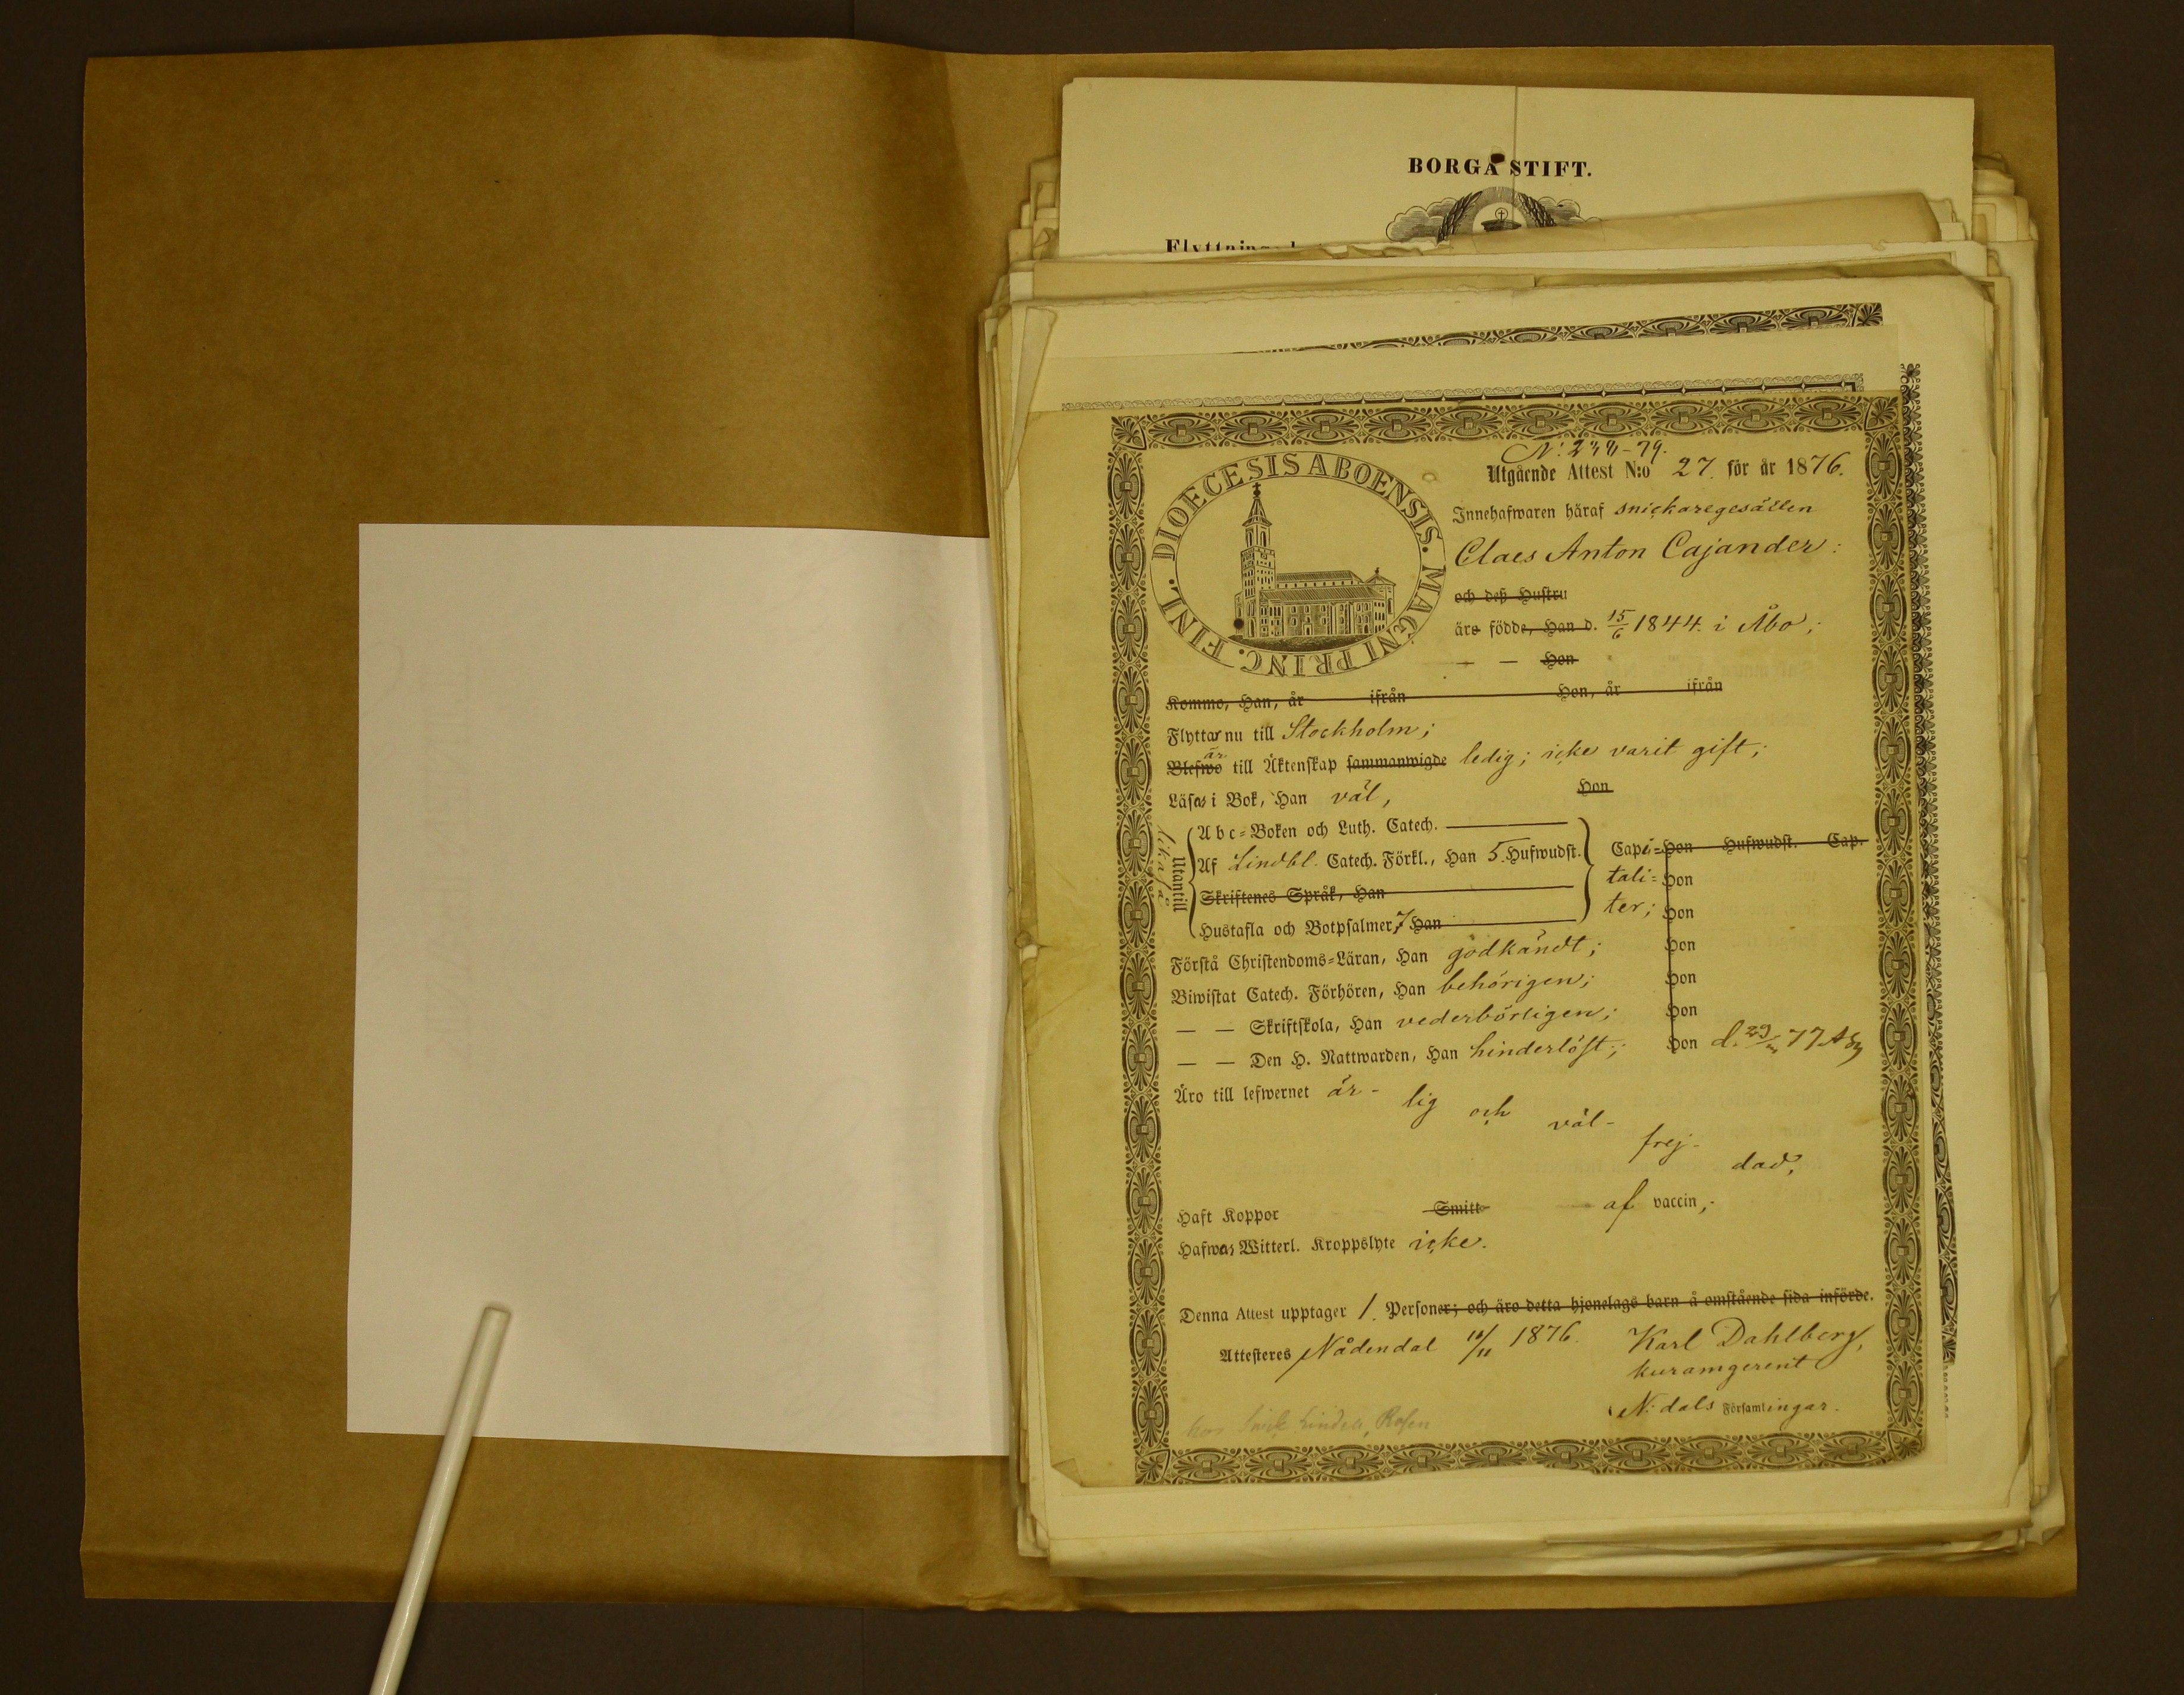 BORGÅ STIFT.
DIOECESIS ABOENSIS. MAGNI PRINC. FINL.
Utgående Attest N:o 27. för år 1876.
Innehafwaren häraf snickaregesällen
Claes Anton Cajander:
och deß Hustru
äro födde, Han d. 15/6 1844. i Åbo;
— — Hon
Kommo, Han, år ifrån Hon, år ifrån
Flyttar nu till Stockholm;
är
Blefwo till Äktenskap sammanwigde ledig; icke varit gift;
Läsas i Bok, Han väl, Hon
Utantill
likaså
Abc-Boken och Luth. Catech.
Af Lindbl. Catech. Förkl., Han 5. Hufwudst. Capi= Hon Hufwudst. Cap.
Skriftenes Språk, Han tali= Hon
Hustafla och Botpsalmer, 7 Han ter; Hon
Förstå Christendoms-Läran, Han godkändt; Hon
Biwistat Catech. Förhören, Han behörigen; Hon
— — Skriftskola, Han vederbörligen; Hon
— — Den H. Nattwarden, Han hinderlöst; Hon d. 29 77
Äro till lefwernet är- lig och väl- frej- dad,
Haft Koppor Smitto af vaccin,-
Hafwa Witterl. Kroppslyte icke.
Denna Attest upptager 1. Personer; och äro detta hjonelags barn å omstående sida införde.
Attesteres Nådendal 16/11 1876. Karl Dahlberg,
kuramgerent
N:dals Församlingar.